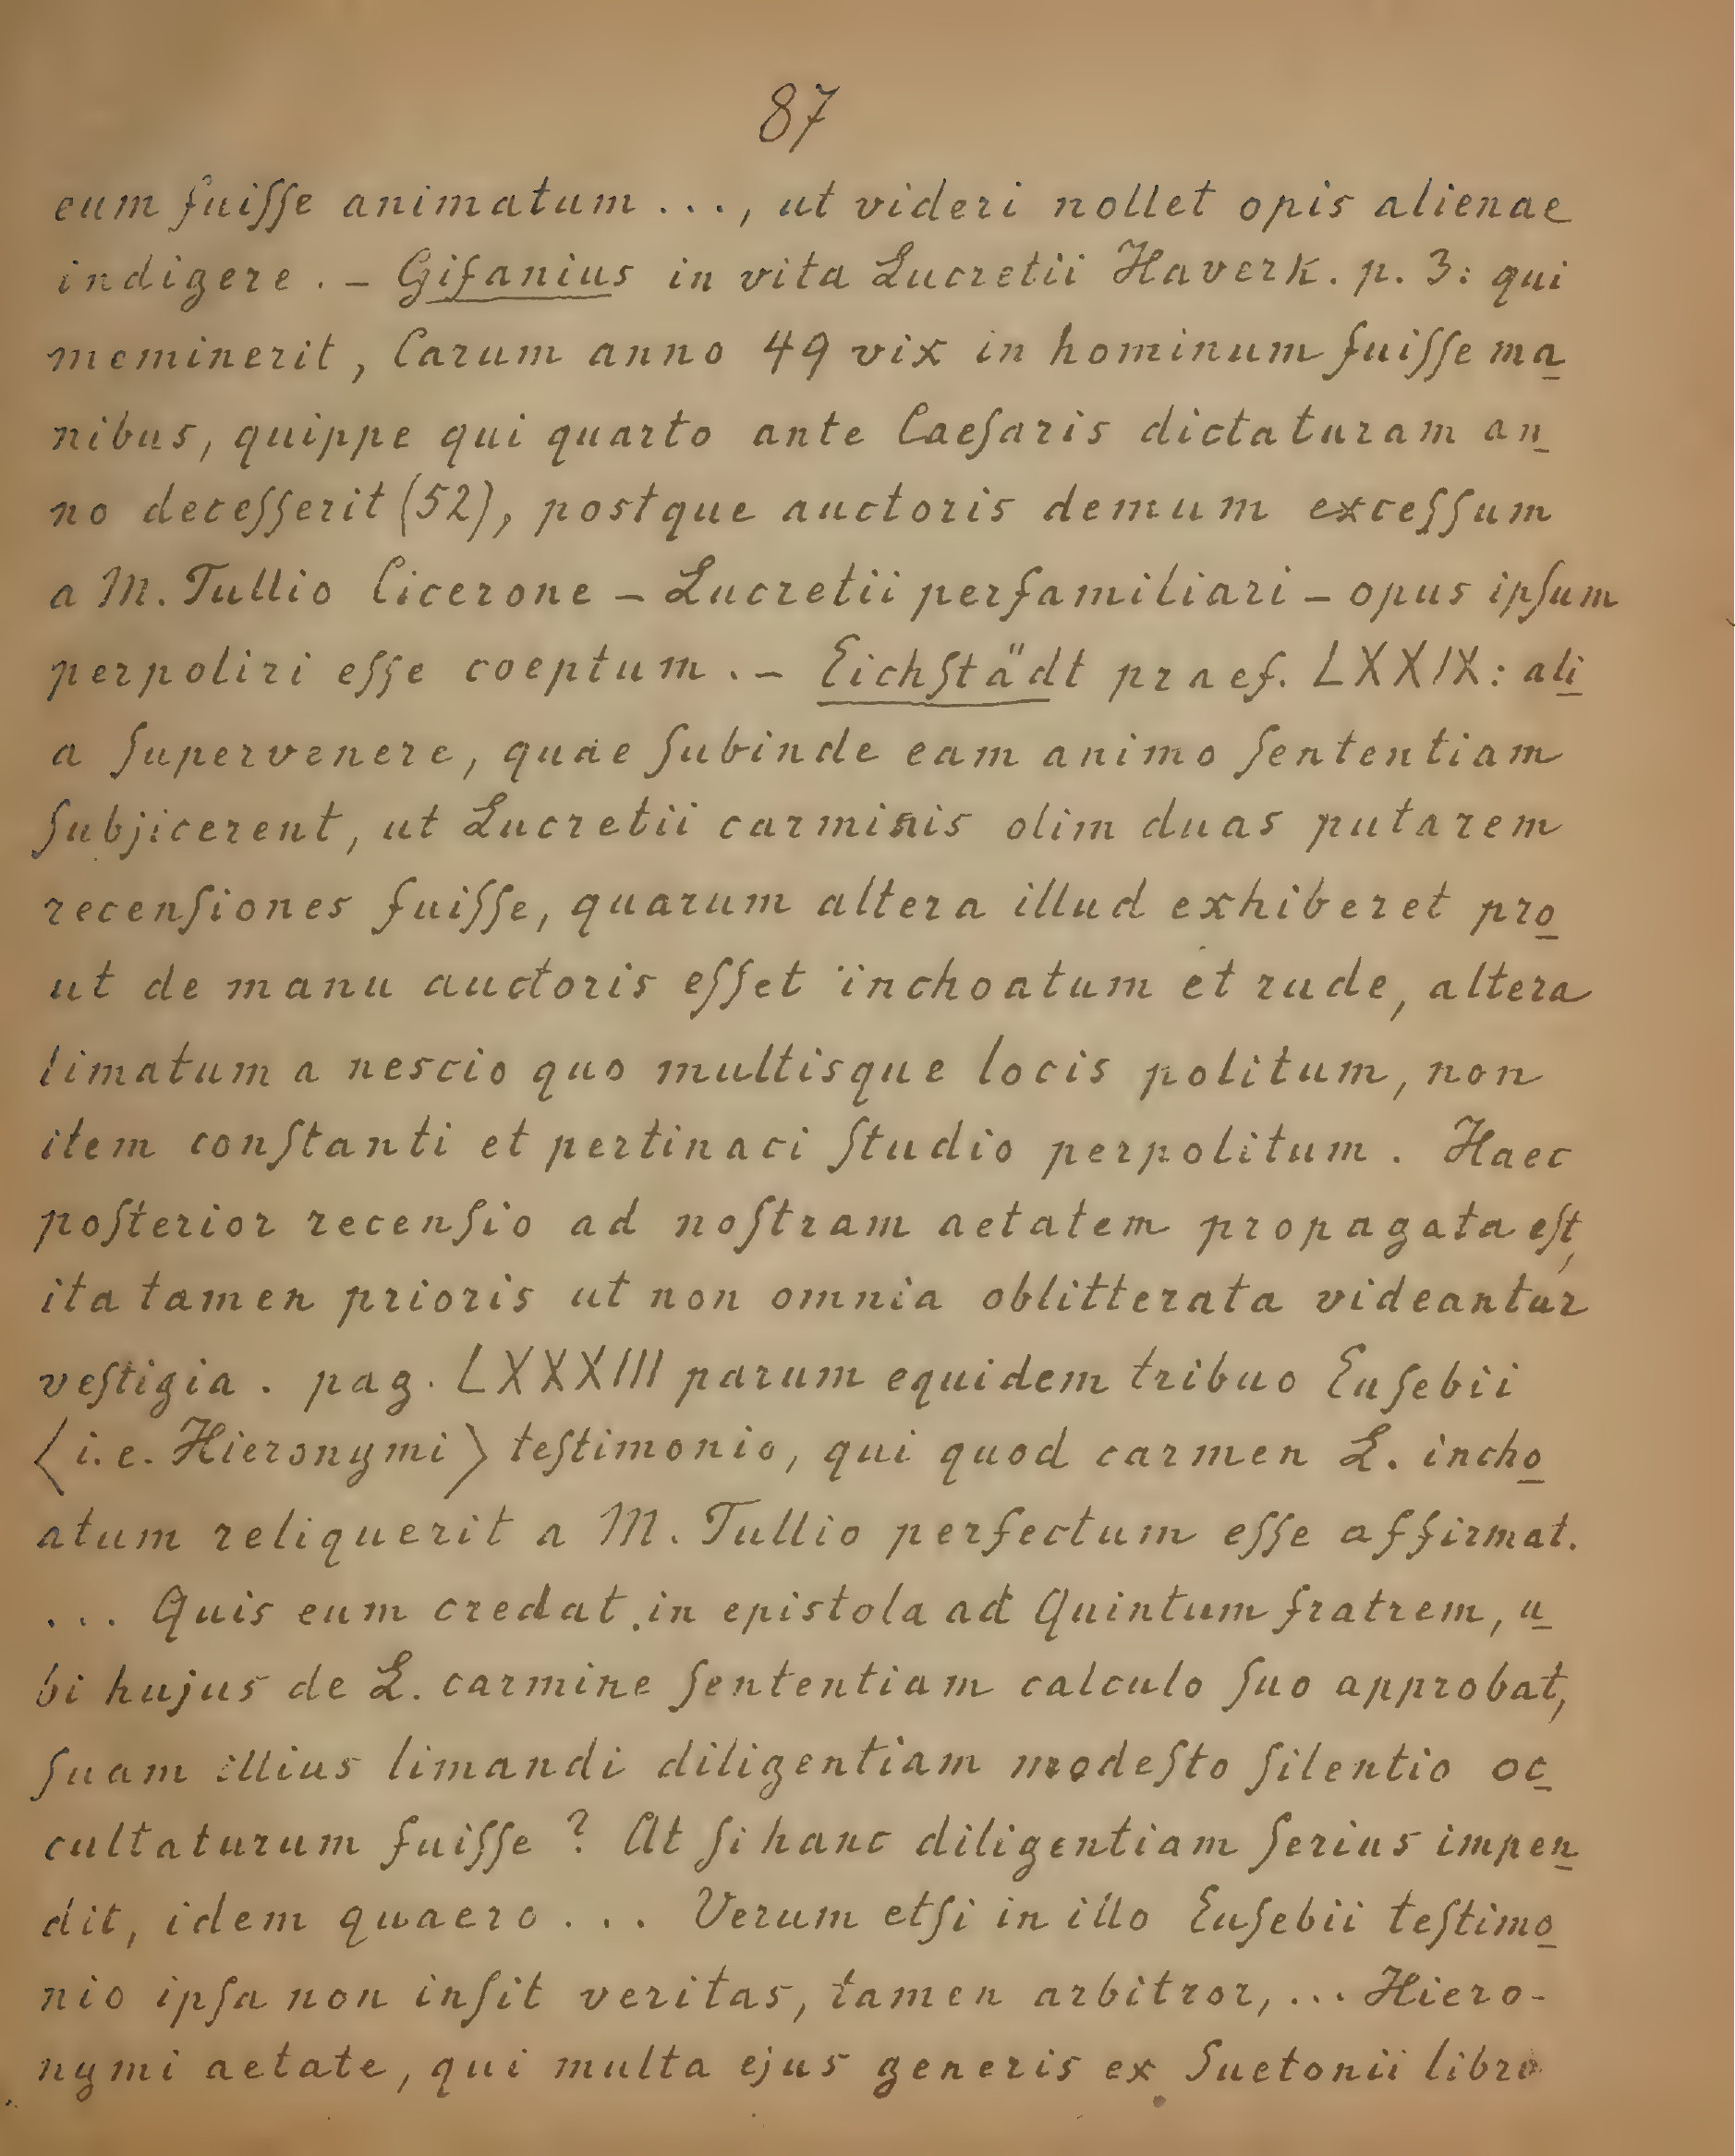 87
eum fuiſſe animatum ..., ut videri nollet opis alienae
indigere. – Gifanius in vita Lucretii Haverk. p. 3: qui
meminerit, Carum anno 49 vix in hominum fuiſſe ma
nibus, quippe qui quarto ante Caeſaris dictaturam an
no deceſſerit (52), postque auctoris demum exceſſum
a M. Tullio Cicerone – Lucretii perfamiliari – opus ipſum
perpoliri eſſe coeptum. – Eichſtädt praef. LXXIX: ali
a ſupervenere, quae ſubinde eam animo ſententiam
ſubjicerent, ut Lucretii carminis olim duas putarem
recenſiones fuiſſe, quarum altera illud exhiberet pro
ut de manu auctoris eſſet inchoatum et rude, altera
limatum a nescio quo multisque locis politum, non
item conſtanti et pertinaci ſtudio perpolitum. Haec
poſterior recenſio ad noſtram aetatem propagata eſt,
ita tamen prioris ut non omnia oblitterata videantur
veſtigia. pag. LXXXIII parum equidem tribuo Euſebii
⟨i.e. Hieronymi⟩ teſtimonio, qui quod carmen L. incho
atum reliquerit a M. Tullio perfectum eſſe affirmat.
... Quis eum credat in epistola ad Quintum fratrem, u
bi hujus de L. carmine ſententiam calculo ſuo approbat,
ſuam illius limandi diligentiam modeſto ſilentio oc
cultaturum fuiſſe? At ſi hanc diligentiam ſerius impen
dit, idem quaero... Verum etſi in illo Euſebii teſtimo
nio ipſa non inſit veritas, tamen arbitror, ... Hiero-
nymi aetate, qui multa ejus generis ex Suetonii libro